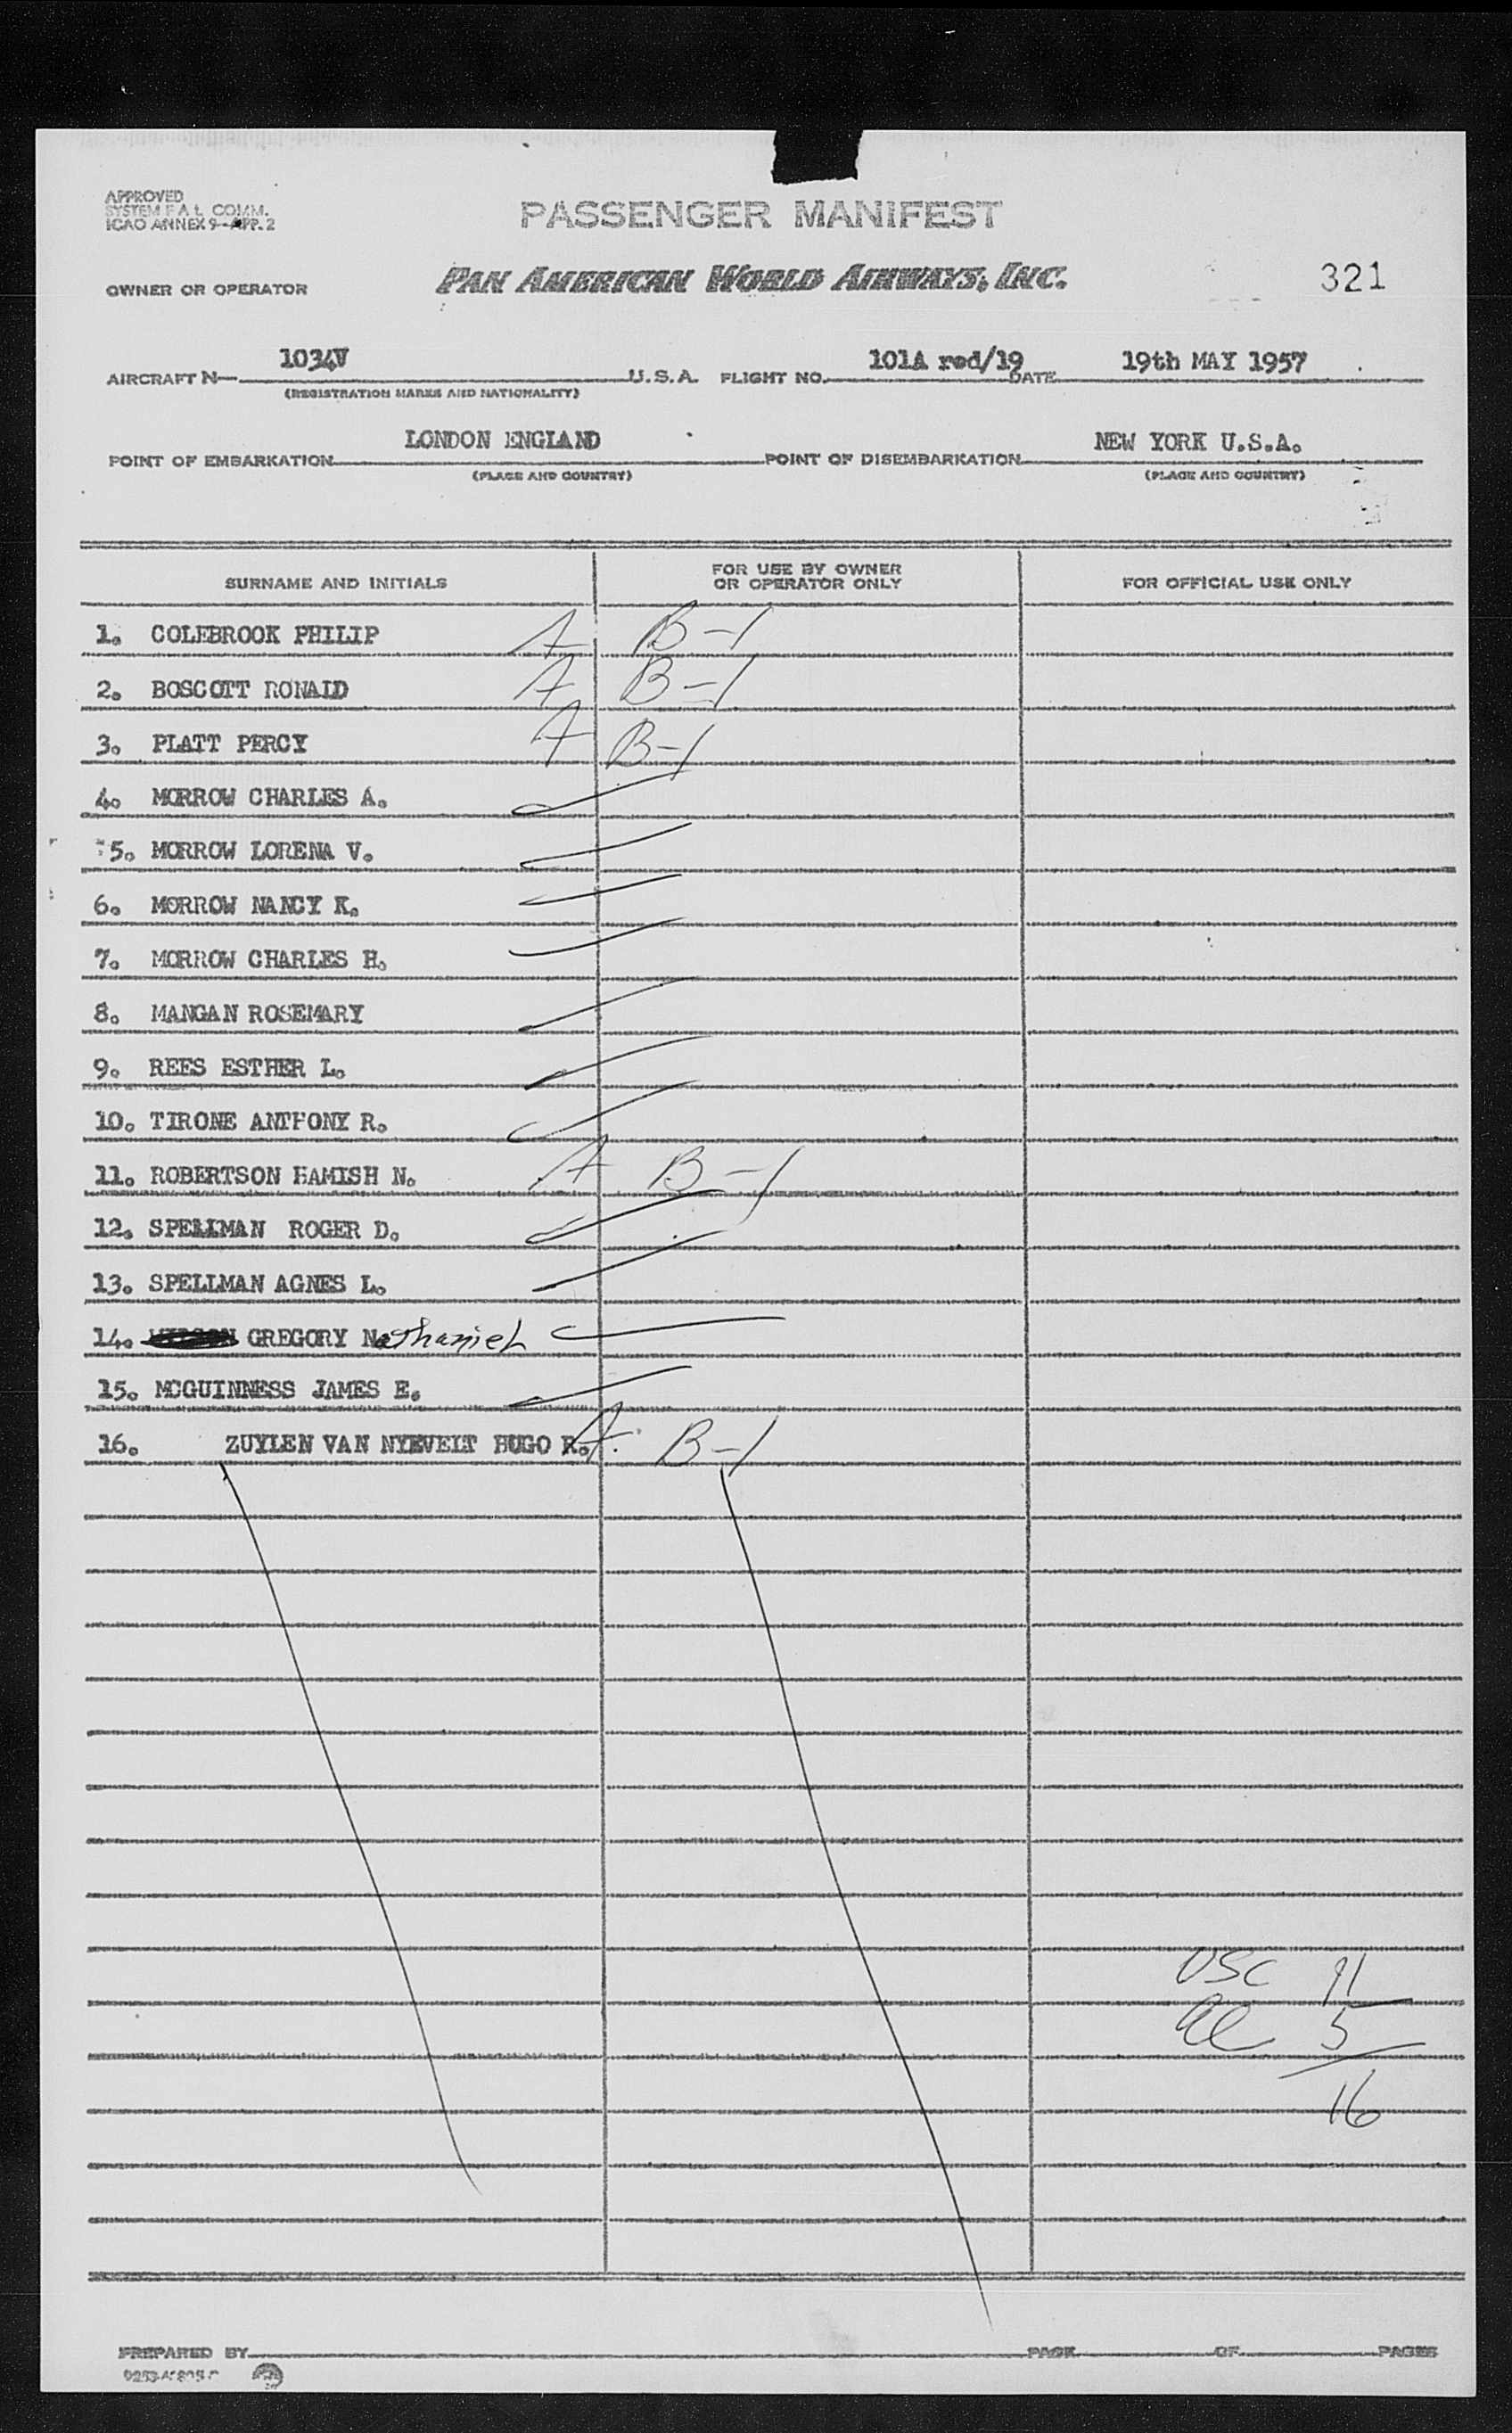 APPROVED
SYSTEM F A L COMM.
ICAO ANNEX 9--APP. 2
PASSENGER MANIFEST
OWNER OR OPERATOR PAN AMERICAN WORLD AIRWAYS, INC. 321
AIRCRAFT N— 1034V U.S.A. FLIGHT NO. 101A red/19 DATE 19th MAY 1957
(REGISTRATION MARKS AND NATIONALITY)
POINT OF EMBARKATION LONDON ENGLAND POINT OF DISEMBARKATION NEW YORK U.S.A.
(PLACE AND COUNTRY) (PLACE AND COUNTRY)
SURNAME AND INITIALS FOR USE BY OWNER OR OPERATOR ONLY FOR OFFICIAL USE ONLY
1. COLEBROOK PHILIP A B-1
2. BOSCOTT RONALD A B-1
3. PLATT PERCY A B-1
4. MORROW CHARLES A.
5. MORROW LORENA V.
6. MORROW NANCY K.
7. MORROW CHARLES H.
8. MANGAN ROSEMARY
9. REES ESTHER L.
10. TIRONE ANTHONY R.
11. ROBERTSON HAMISH N. A B-1
12. SPELLMAN ROGER D.
13. SPELLMAN AGNES L.
14. GREGORY Nathaniel
15. MCGUINNESS JAMES E.
16. ZUYLEN VAN NYEVELT HUGO R. A. B-1
USC 11
al 5
16
PREPARED BY PAGE OF PAGES